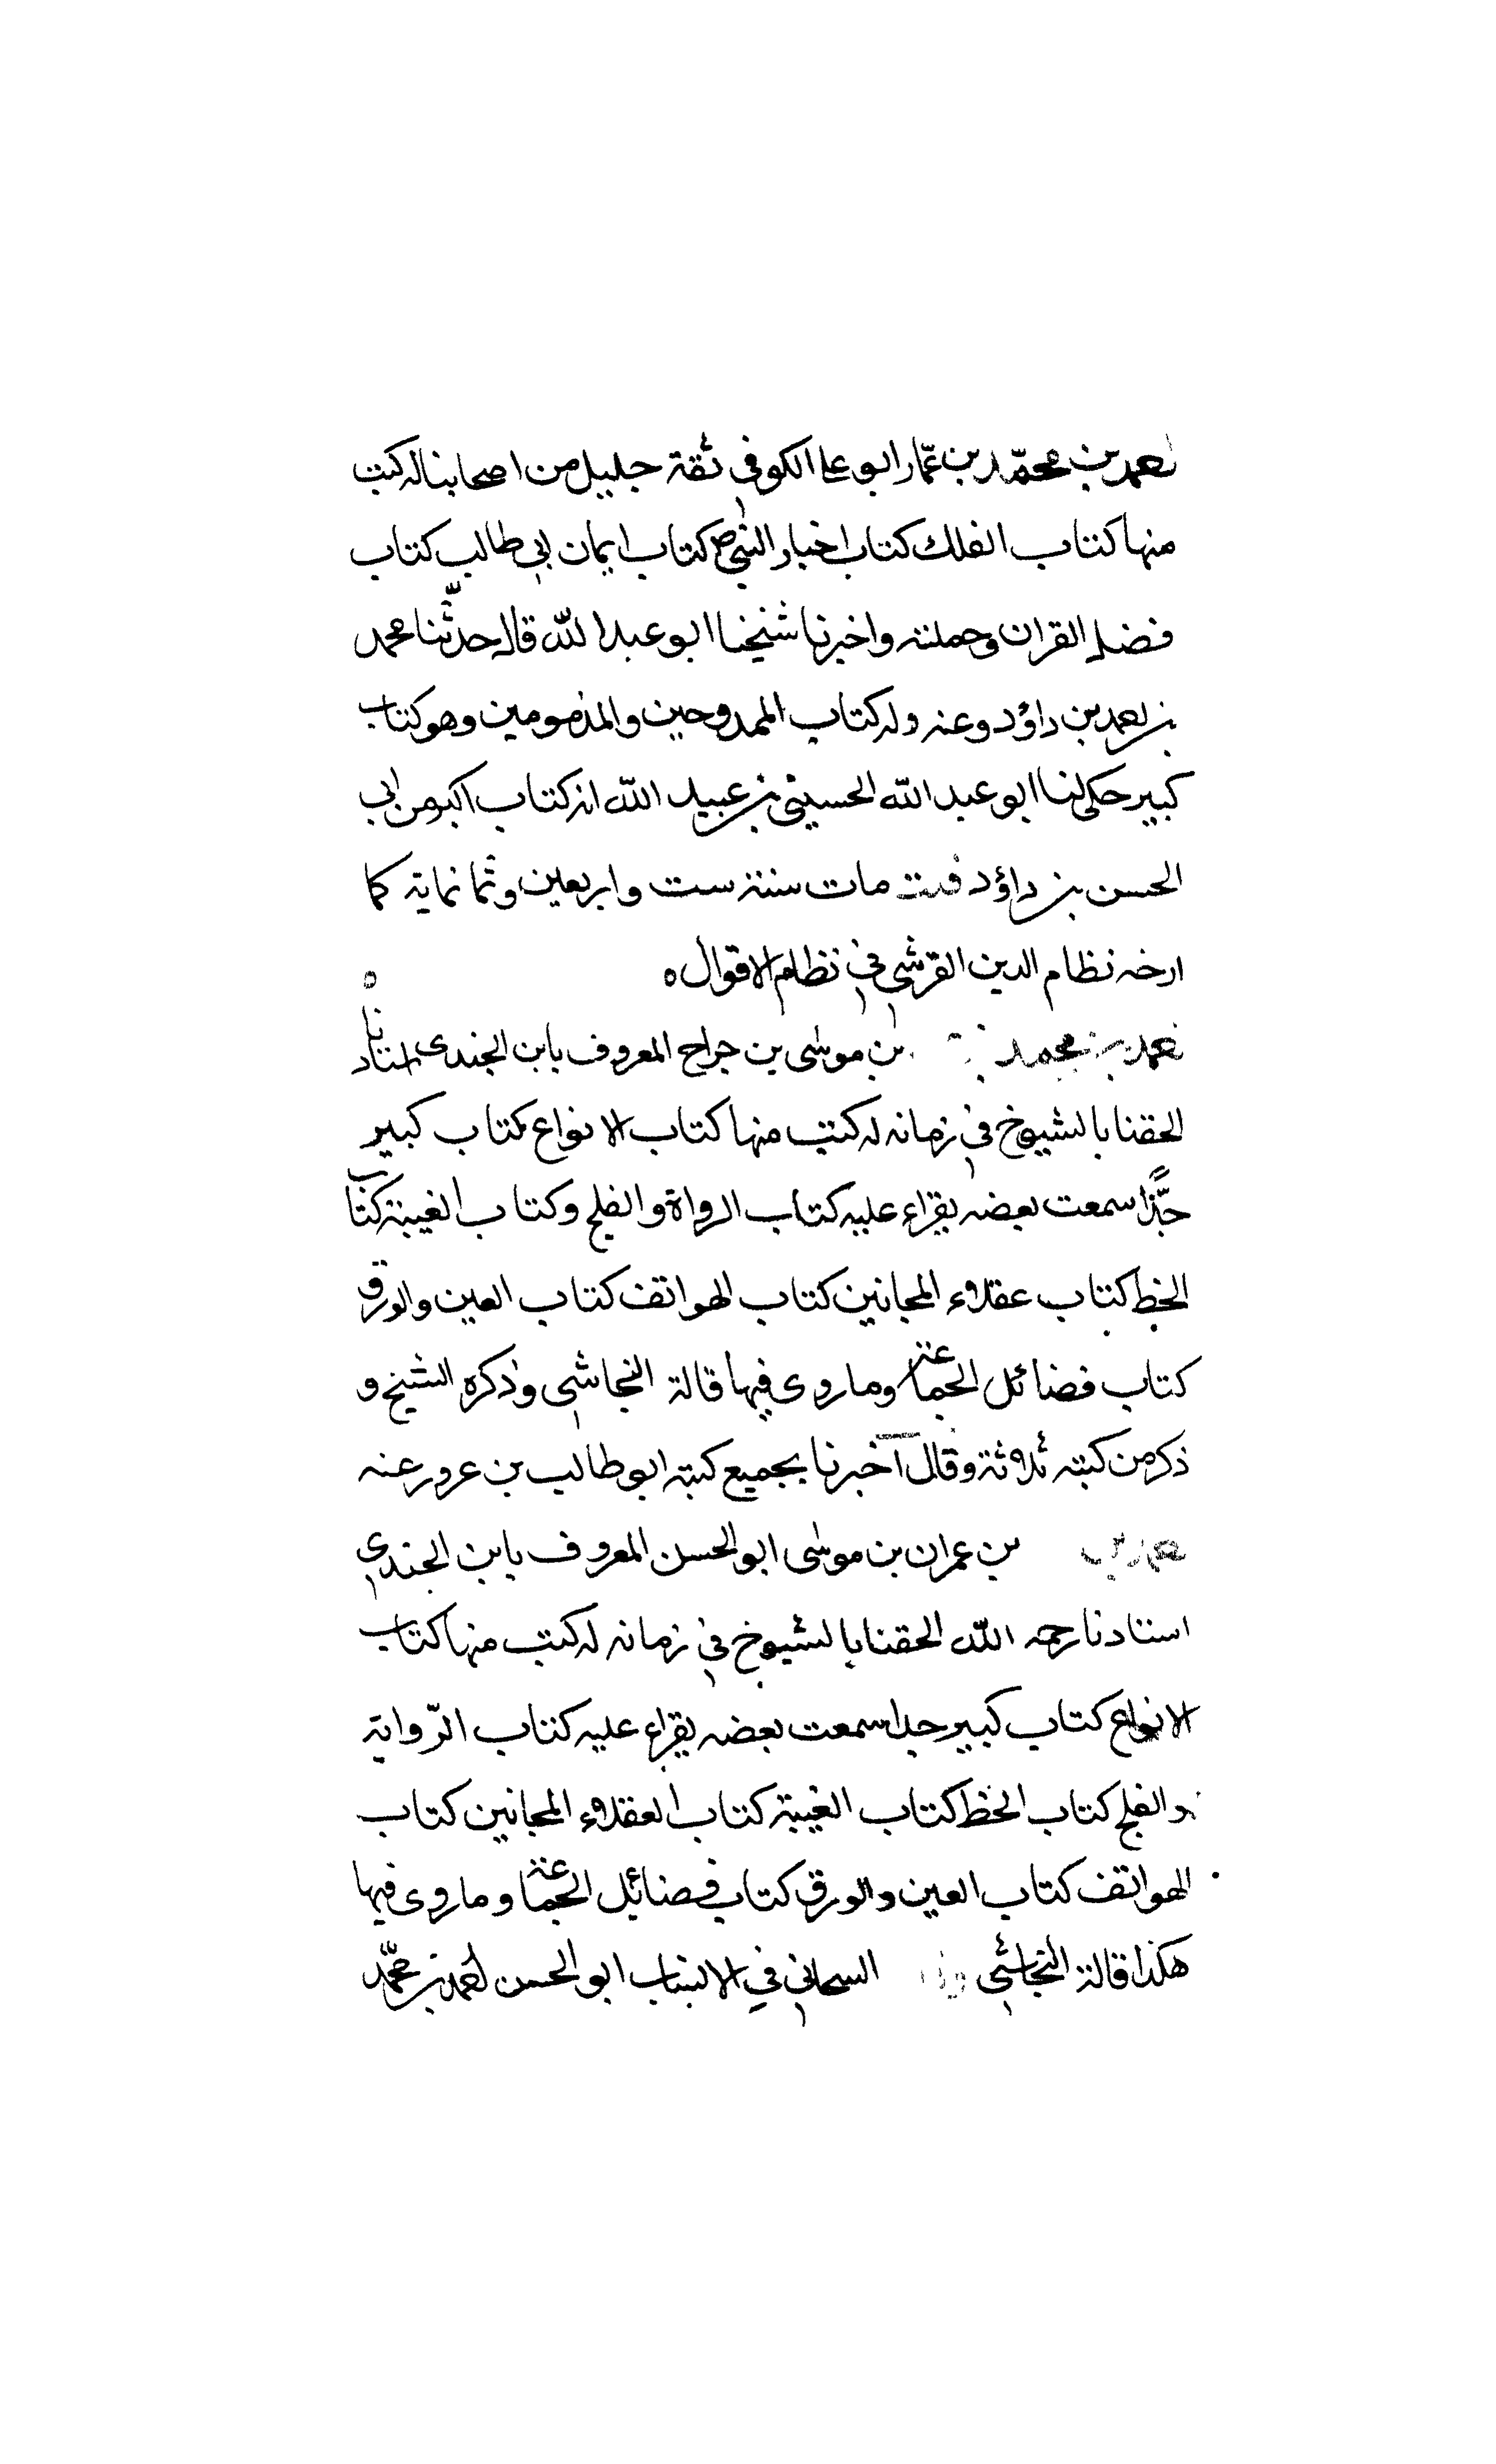 احمد بن محمّد بن عمّار ابو علي الكوفي ثقة جليل من اصحابنا له كتب
منها كتاب الفلك كتاب اخبار النبي ص كتاب ايمان ابي طالب كتاب
فضل القران وحملته واخبرنا شيخنا ابو عبد اللّه قال حدّثنا محمد
بن احمد بن داؤد وعنه وله كتاب الممدوحين والمذمومين وهو كتاب
كبير حكى لنا ابو عبد اللّه الحسين بن عبيد اللّه انه كتاب اكبر من ابي
الحسن بن داؤد مات سنة ست واربعين وثمانماية كما
ارخه نظام الدين القرشي في نظام الاقوال ٥
احمد بن محمد بن موسى بن جراح المعروف بابن الجندي استادنا
الحقنا بالشيوخ في زمانه له كتب منها كتاب الانواع كتاب كبير
جدًّا سمعت بعضه يقراء عليه كتاب الرواة والفلج وكتاب الغيبة كتاب
الخط كتاب عقلاء المجانين كتاب الهواتف كتاب العين والورق
كتاب فضائل الجماعة وما روى فيها قالة النجاشي وذكره الشيخ و
ذكر من كتبه ثلاثة وقال اخبرنا بجميع كتبه ابو طالب بن عرور عنه
احمد بن بن عمران بن موسى ابو الحسن المعروف بابن الجندي
استادنا رحمه اللّه الحقنا بالشيوخ في زمانه له كتب منها كتاب
الانواع كتاب كبير جدا سمعت بعضه يقراء عليه كتاب الرّواية
والفلج كتاب الخط كتاب الغيبة كتاب العقلاء المجانين كتاب
الهواتف كتاب العين والورق كتاب فضائل الجماعة وما روى فيها
هكذا قالة النجاشي السمعاني في الانساب ابو الحسن احمد بن محمّد